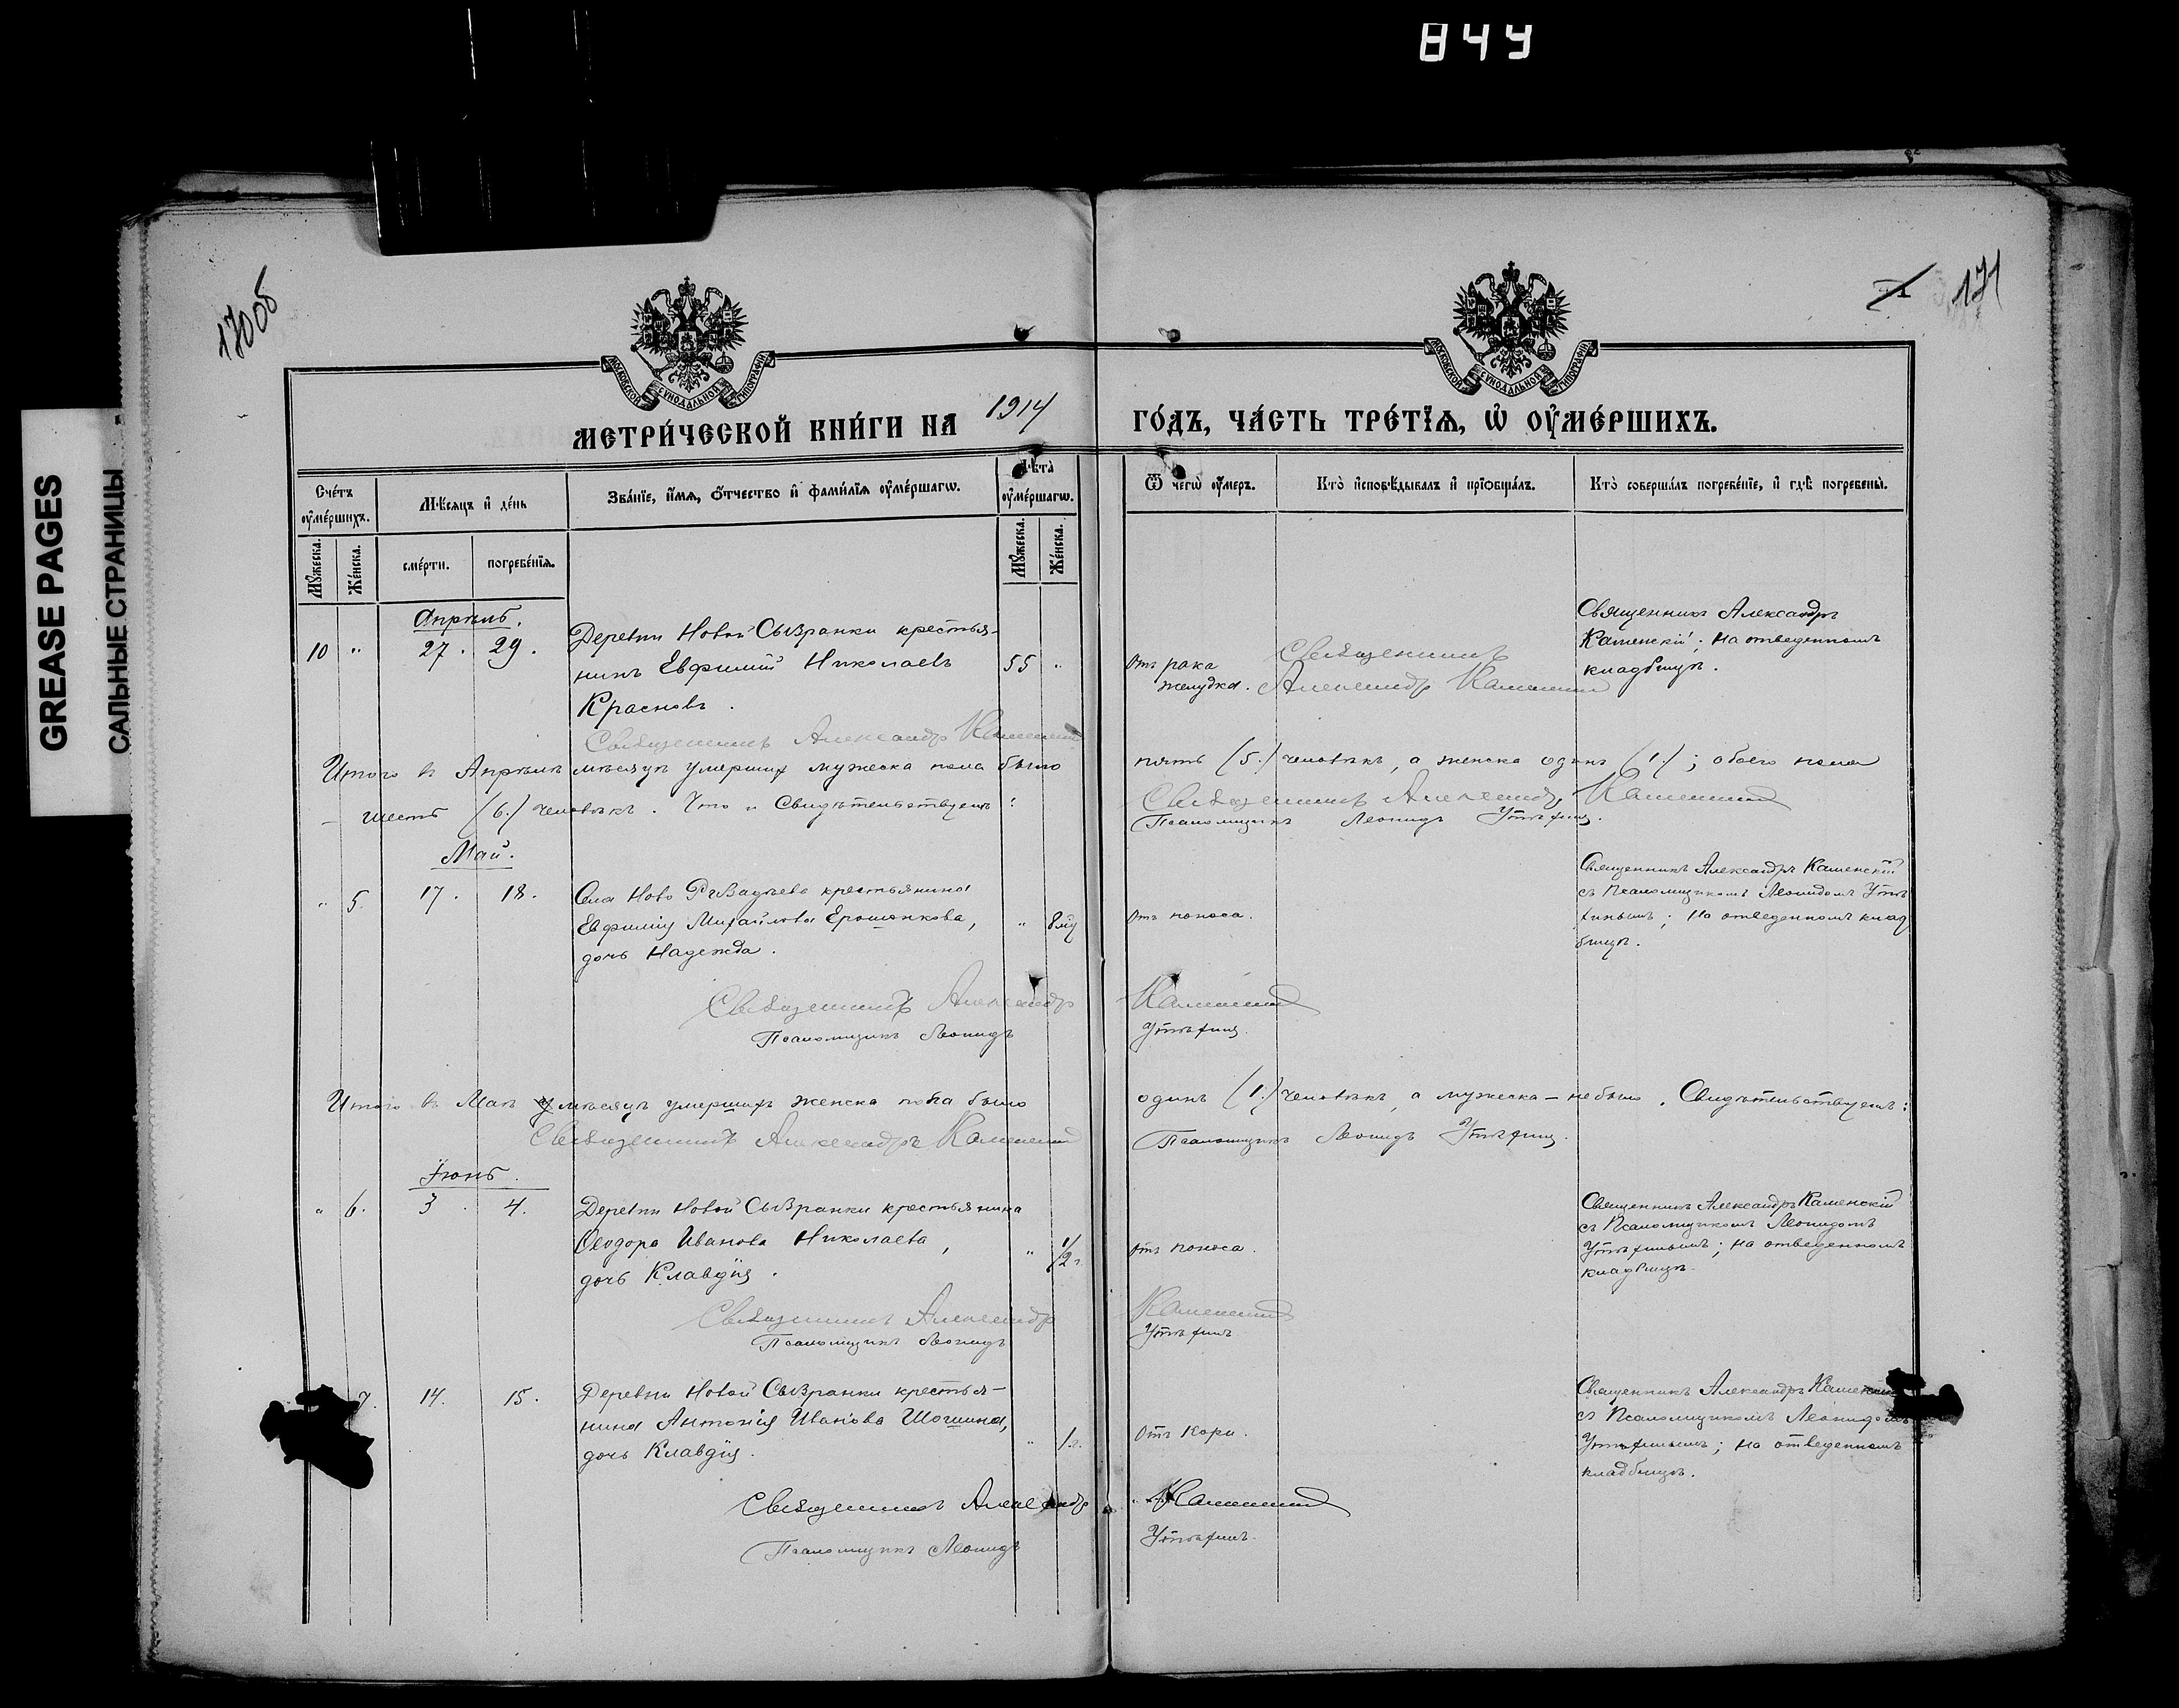 844
GREASE PAGES
САЛЬНЫЕ СТРАНИЦЫ
170об
171
МОСКОВСКОЙ СѴНОДАЛЬНОЙ ТИПОГРАФІИ
МОСКОВСКОЙ СѴНОДАЛЬНОЙ ТИПОГРАФІИ
МЕТРИ́ЧЕСКОЙ КНИ́ГИ НА 1914 ГО́ДЪ, ЧА́СТЬ ТРЕ́ТЇѦ, Ѡ҆ ОУ҆МЕ́РШИХЪ.
Сче́тъ оу҆ме́ршихъ.
Мѣ́сяцъ и҆ де́нь
Зва́нїе, и҆́мѧ, ѻ҆́тчество и҆ фами́лїѧ оу҆ме́ршагѡ.
Лѣ́та оу҆ме́ршагѡ.
Ѿ чегѡ̀ оу҆́меръ.
Кто̀ и҆сповѣ́дывалъ и҆ прїѡбща́лъ.
Кто̀ соверша́лъ погребе́нїе, и҆ гдѣ̀ погребены̀.
Мꙋ́жеска.
Же́нска.
сме́рти.
погребе́нїѧ.
Мꙋ́жеска.
Же́нска.
Апрѣль.
10 " 27. 29. Деревни Новой Сызранки крестья-
нинъ Евфимий Николаевъ 55 "
Красновъ.
Отъ рака
желудка.
Священникъ
Александръ Каменский
Священникъ Александръ
Каменскій; на отведенномъ
кладбищѣ.
Священникъ Александръ Каменский
Итого въ Апрѣлѣ мѣсяцѣ умершихъ мужеска пола было пять (5.) человѣкъ, а женска одинъ (1.); обоего пола
шесть (6.) человѣкъ. Что и Свидѣтельствуемъ: Священникъ Александръ Каменский
Псаломщикъ Леонидъ Утѣхинъ.
Май.
" 5. 17. 18. Села Ново Рѣ
крестьянина
Евфимія Михайлова Ерошонкова, "
дочь Надежда.
Отъ поноса.
Священникъ Александръ Каменскій
съ Псаломщикомъ Леонидомъ Утѣ
хинымъ; на отведенномъ клад
бищѣ.
Священникъ Александръ Каменский
Псаломщикъ Леонидъ Утѣхинъ.
Итого въ Маѣ мѣсяцѣ умершихъ женска пола было одинъ (1.) человѣкъ, а мужеска – не было. Свидѣтельствуемъ:
Священникъ Александръ Каменский Псаломщикъ Леонидъ Утѣхинъ.
Іюнь.
" 6. 3. 4. Деревни Новой Сызранки крестьянина
Ѳеодора Иванова Николаева, " 1/2 г.
дочь Клавдія.
отъ поноса.
Священникъ Александръ Каменскій
съ Псаломщикомъ Леонидомъ
Утѣхинымъ; на отведенномъ
кладбищѣ.
Священникъ Александръ Каменский
Псаломщикъ Леонидъ Утѣхинъ
7. 14. 15. Деревни Новой Сызранки крестья-
нина Антонія Иванова Шошина,
дочь Клавдія. " 1 г.
Отъ кори.
Священникъ Александръ Каменскій
съ Псаломщикомъ Леонидомъ
Утѣхинымъ; на отведенномъ
кладбищѣ.
Священникъ Александръ Каменский
Псаломщикъ Леонидъ Утѣхинъ.